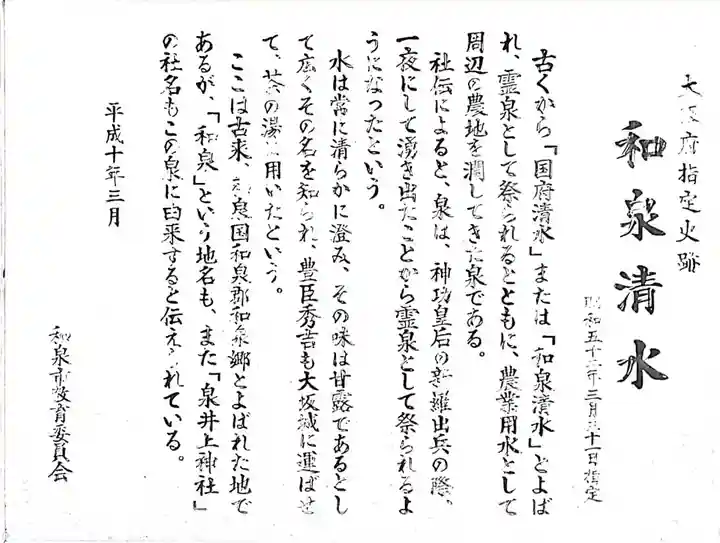 大阪府指定史跡
和泉清水
昭和五十六年三月三十一日指定
古くから「国府清水」または「和泉清水」とよば
れ、霊泉として祭られるとともに、農業用水として
周辺の農地を潤してきた泉である。
社伝によると、泉は、神功皇后の新羅出兵の際、
一夜にして湧き出たことから霊泉として祭られるよ
うになったという。
水は常に清らかに澄み、その味は甘露であるとし
て広くその名を知られ、豊臣秀吉も大坂城に運ばせ
て、茶の湯に用いたという。
ここは古来、和泉国和泉郡和泉郷とよばれた地で
あるが、「和泉」という地名も、また「泉井上神社」
の社名もこの泉に由来すると伝えられている。
平成十年三月
和泉市教育委員会